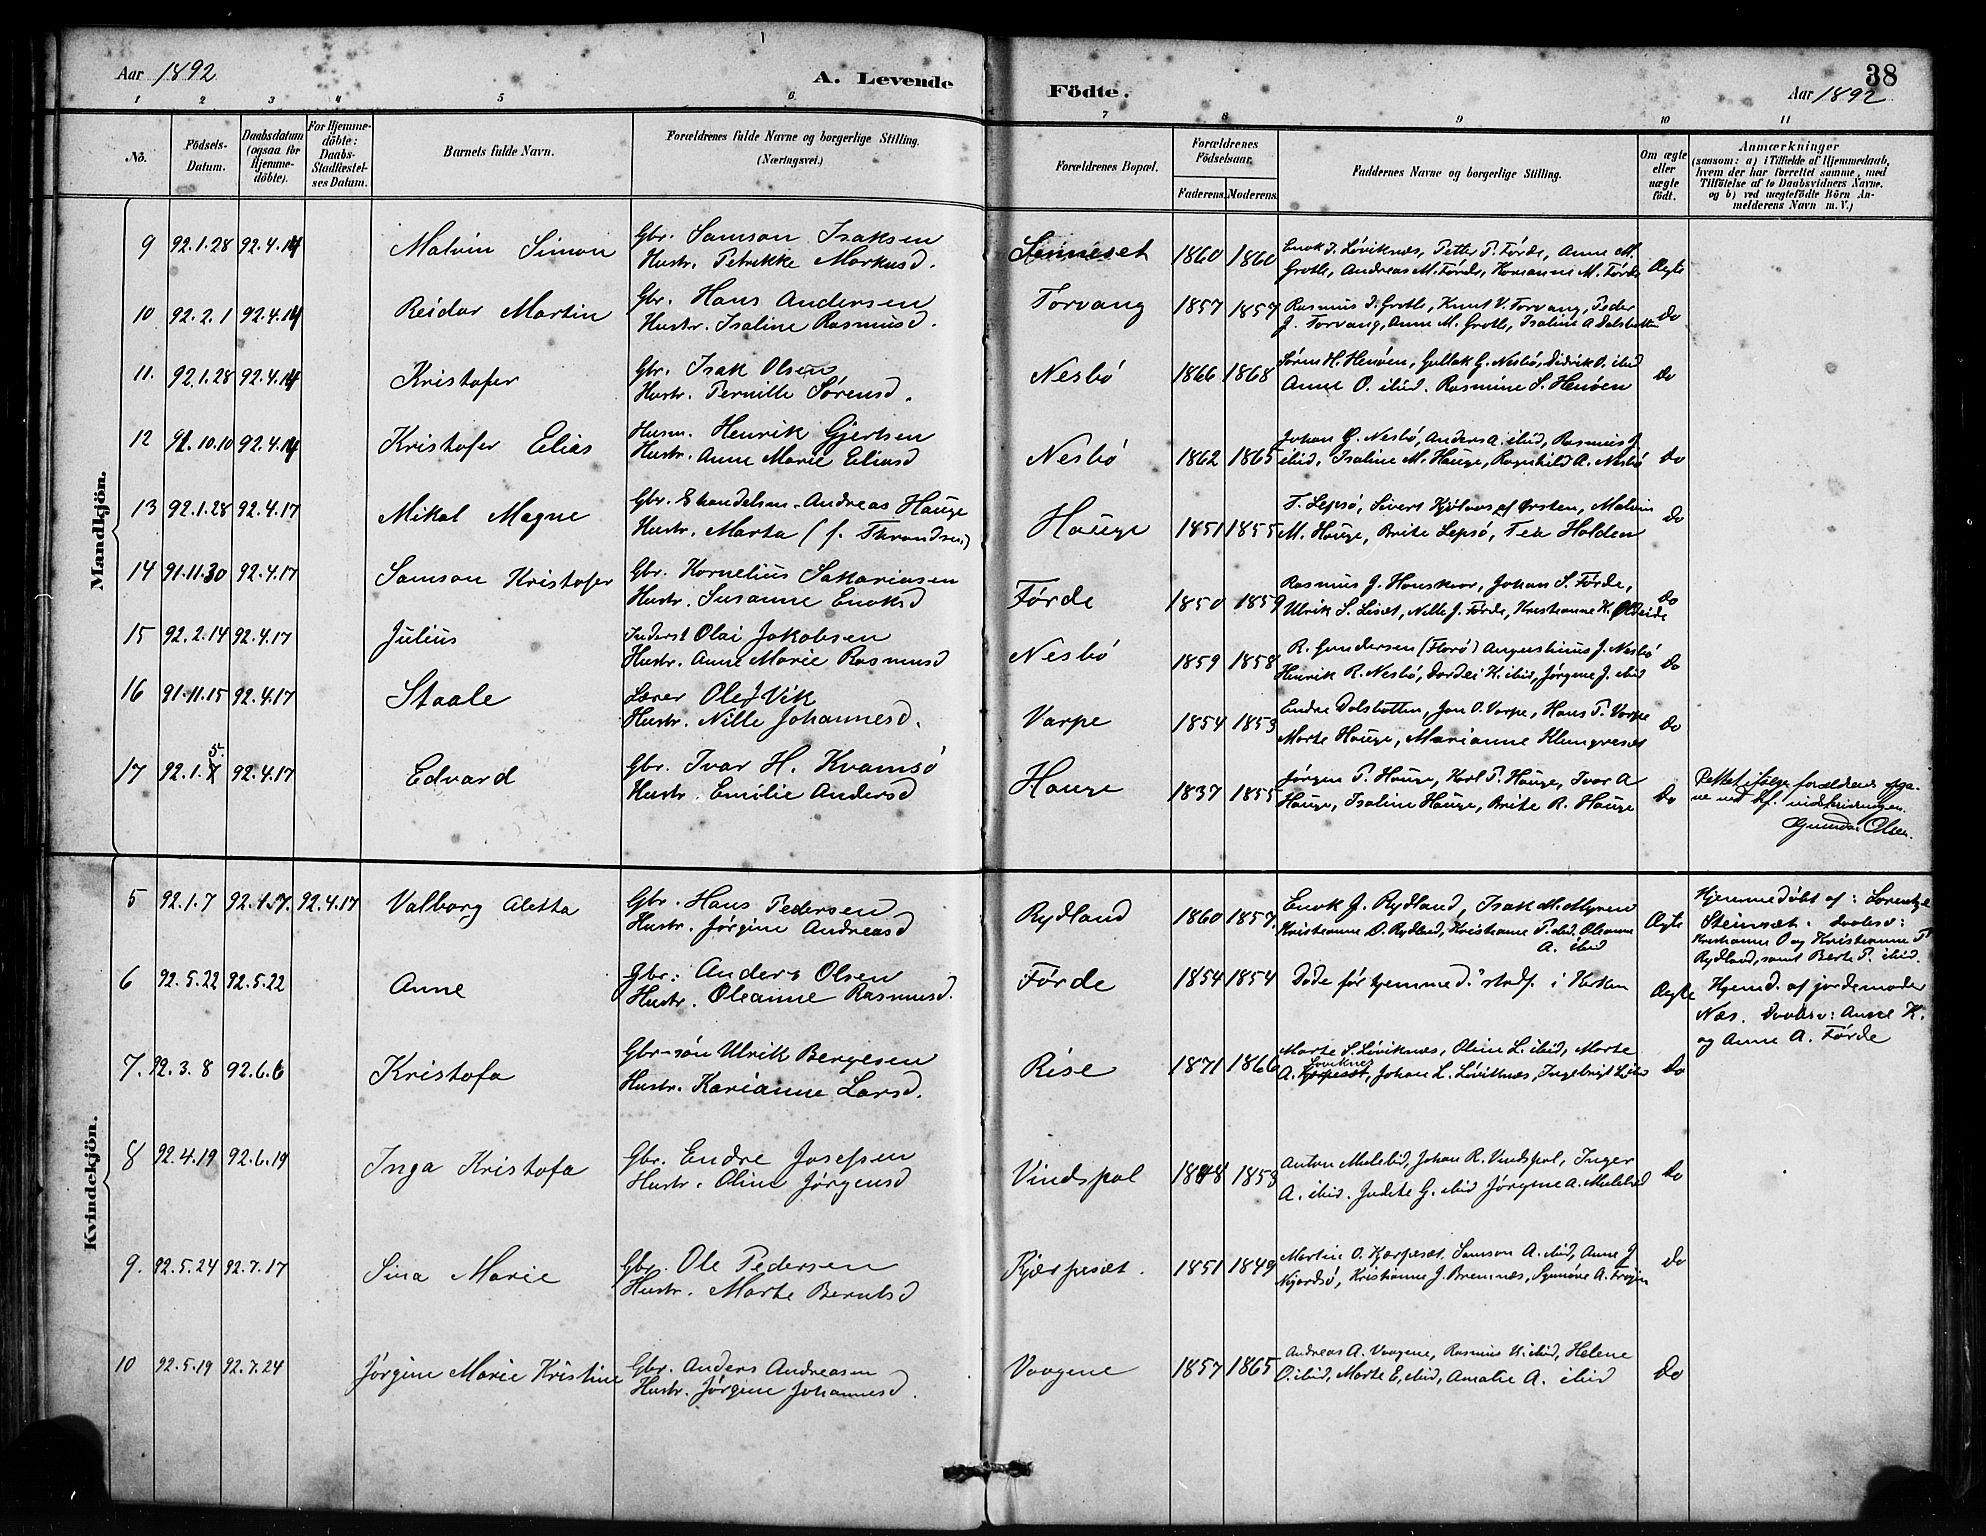 Aar 1892
A. Levende Födte.
38
Aar 1892
1 2 3 4 5 6. 7 8 9 10 11
No.
Födsels-Datum.
Daabsdatum (ogsaa for Hjemmedöbte).
For Hjemmedöbte: Daabs-Stadfæstelses Datum.
Barnets fulde Navn.
Forældrenes fulde Navne og borgerlige Stilling. (Næringsvei.)
Forældrenes Bopæl.
Forældrenes Födselsaar.
Faderens. Moderens.
Faddernes Navne og borgerlige Stilling.
Om ægte eller uægte födt.
Anmærkninger (saasom: a) i Tilfælde af Hjemmedaab, hvem der har forrettet samme, med Tilföielse af to Daabsvidners Navne, og b) ved uægtefödte Börn Anmelderens Navn m. V.)
Mandkjön.
9 92.1.28 92.4.14 Malvin Simon Gbr. Samson Isaksen
Hustr. Petrikke Markusd. 1860 1860 Enok J. Løviknes, Petter P. Førde, Anne M.
Grotle, Andreas M. Førde, Karianne M. Førde Ægte
10 92.2.1 92.4.14 Reidar Martin Gbr. Hans Andersen
Hustr. Isaline Rasmusd. Torvang 1857 1857 Rasmus D. Grotle, Knut V. Torvang, Peder
J. Torvang, Anne M. Grotle, Isaline A Dalsbotten do
11. 92.1.28 92.4.14 Kristofer Gbr. Isak Olsen
Hustr. Pernille Sørensd. Nesbö 1866 1868 Søren H. Henøen, Gullak G. Nesbö, Didrik O. ibid
Anne O. ibid. Rasmine S. Henøen do
12 91.10.10 92.4.14 Kristofer Elias Husm. Henrik Gjertsen
Hustr. Anne Marie Eliasd Nesbö 1862 1865 Johan G. Nesbö, Anders A. ibid, Rasmus J.
ibid, Isaline M. Hauge, Ragnhild A. Nesbö do
13 92.1.28 92.4.17 Mikal Magne Gbr. & handelsm. Andreas Hauge
Hustr. Marta (f. Throndsen) Hauge 1851 1855 T. Lepsö, Sivert Kjölaas af Ørsten, Malvin
M. Hauge, Brite Lepsö, Tea Halden do
14 91.11.30 92.4.17 Samson Kristofer Gbr. Kornelius Sakariasen
Hustr. Susanne Enoksd Førde 1850 1859 Rasmus J. Hanskvor, Johan S. Førde,
Ulrik S. Liset, Nille J. Førde, Kristianne K. Oldeide do
15 92.2.14 92.4.17 Julius Inderst Olai Jakobsen
Hustr. Anne Marie Rasmusd Nesbö 1859 1858 R. Gundersen (Florö) Augustinus J. Nesbö
Henrik R. Nesbö, Dordei K. ibid, Jørgine J. ibid do
16 91.11.15 92.4.17 Staale Lærer Ole J Vik
Hustr. Nille Johannesd. Varpe 1854 1853 Endre Dalsbotten, Jon O. Varpe, Hans T. Varpe
Marte Hauge, Marianne Klungreset do
17 92.1.5. 92.4.17 Edvard Gbr. Ivar H. Kvamsö
Hustr. Emilie Andersd Hauge 1837 1855 Jørgen P. Hauge, Karl P. Hauge, Ivar A
Hauge, Isaline Hauge, Brite R. Hauge do
Rettet ifølge forældrenes opga-
ve ved kf. indskrivningen.
Olsen.
Kvindekjön.
5 92.1.7 92.1.17. 92.4.17 Valborg Aletta Gbr. Hans Pedersen
Hustr. Jørgine Andreasd Rydland 1860 1857. Enok J. Rydland, Isak M. Myrene
Kristianne O. Rydland, Kristianne P. ibid. Oleanne
A. ibid Ægte
Hjemmedøbt af: Lorentze
Steinsæt. daabsv:
Kristianne O og Kristianne P.
Rydland, samt Berte P. ibid.
6 92.5.22 92.5.22 Anne Gbr. Anders Olsen
Hustr. Oleanne Rasmusd. Førde 1854 1854 Døde før hjemmed. stadf. i Kirken Ægte
Hjemd. af jordemoder
Næs. Daabsv: Anne K.
og Anne A. Førde
7. 92.3.8 92.6.6 Kristofa Gbr-søn Ulrik Bergesen
Hustr. Karianne Larsd. Rise 1871 1866 Marte S. Løviknes, Oline L. ibid, Marte
A. Løviknes, Johan L. Løviknes, Ingebrigt do
8 92.4.19 92.6.19 Inga Kristofa Gbr. Endre Josefsen
Hustr. Oline Jørgensd Vindspol 1848 1853 Anton Mulelid, Johan R. Vindspol, Inger
A. ibid. Judite G. ibid Jørgine A. Mulelid do
9. 92.5.24 92.7.17 Sina Marie Gbr. Ole Pedersen
Hustr. Marte Berntsd Kjærpesæt. 1851 1849 Martin O. Kjærpesæt, Samson A. ibid, Anne J
Njordsö, Kristianne J. Bremnes, Synnøve A. Frøjen do
10 92.5.19 92.7.24 Jørgine Marie Kristine Gbr. Anders Andreasen
Hustr. Jørgine Johannesd. Vaagene 1857 1865 Andreas A. Vaagene, Rasmus U. ibid, Helene
O. ibid, Marte E. ibid, Amalie A. ibid do